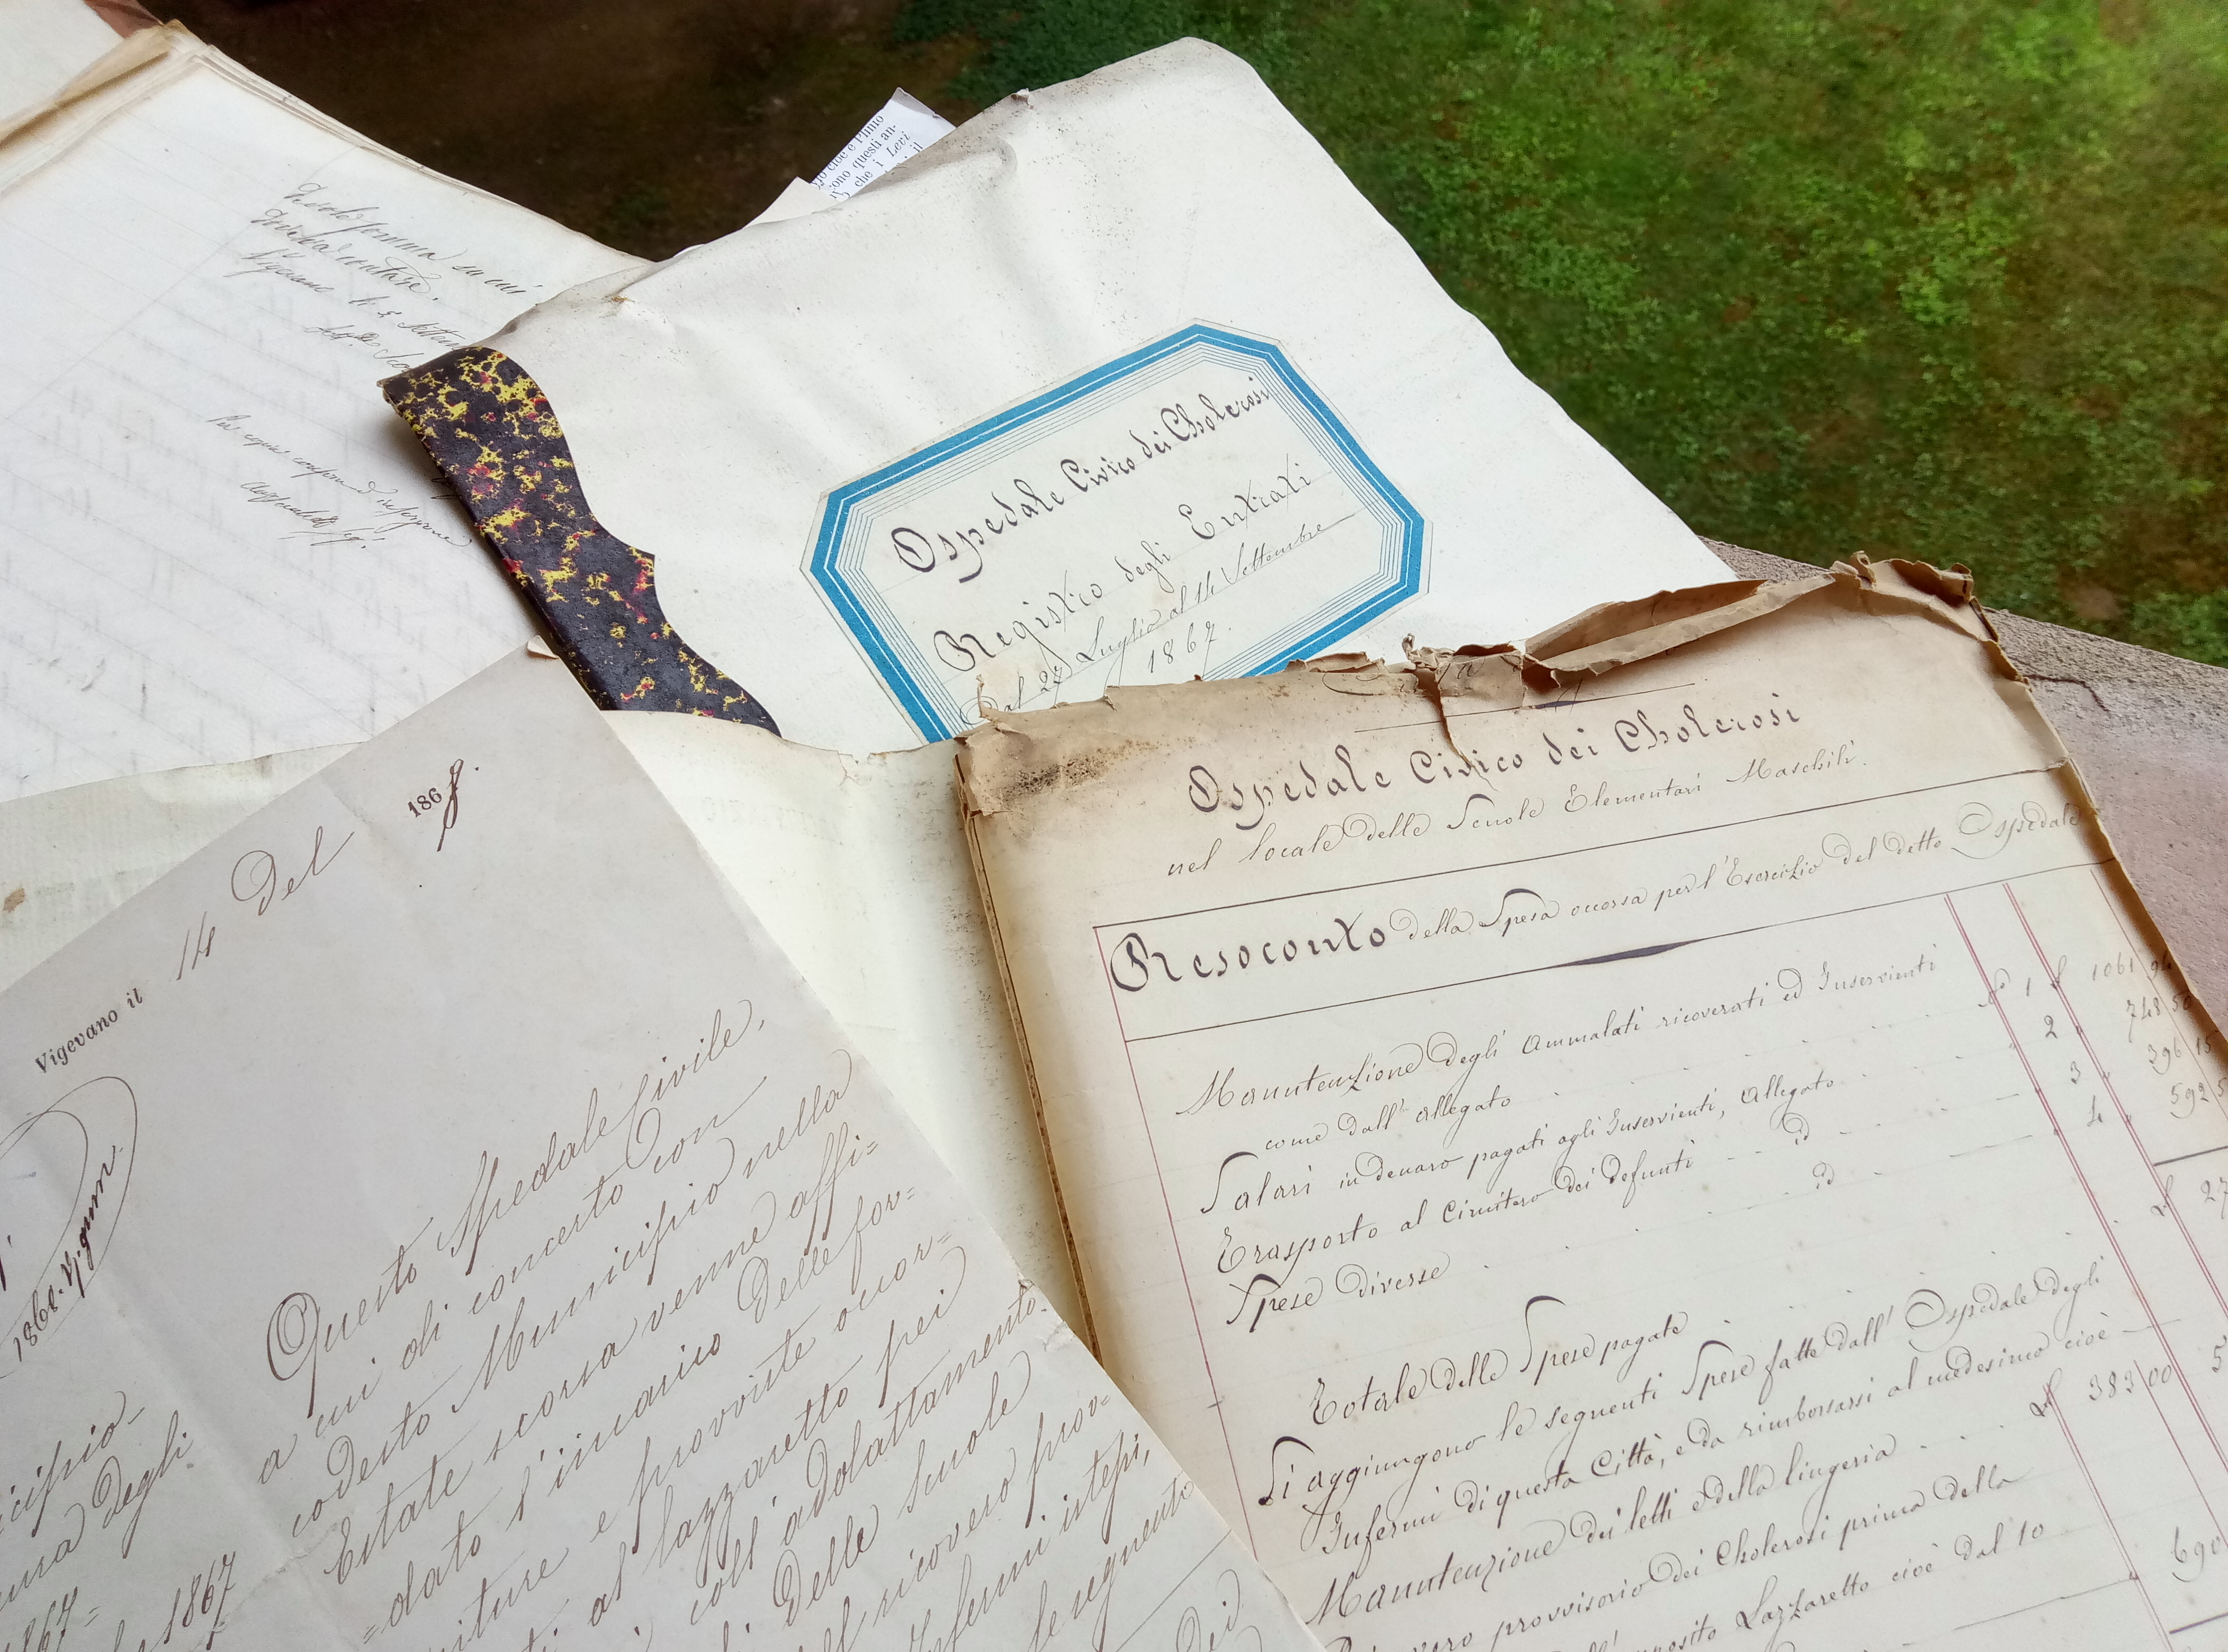 cioè e Plinio
ono questi an-
che i Levi
il
somma su cui
Vigevano li 5
Per copia conforme
Ospedale Civico dei Cholerosi
Registro degli Entrati
Dal 27 Luglio al 14 Settembre
1867.
Ospedale Civico dei Cholerosi
nel locale delle Scuole Elementari Maschili.
Resoconto della Spesa occorsa per l'Esercizio del detto Ospedale
Manutenzione degli Ammalati ricoverati ed Inservienti
come dall'allegato N° 1 £ 1061 94
Salari in denaro pagati agli Inservienti, Allegato 2 " 748 50
Trasporto al Cimitero dei defunti id 3 " 396 15
Spese diverse id 4 " 592 5
Totale delle Spese pagate £ 27
Si aggiungono le seguenti Spese fatte dall'Ospedale degli
Infermi di questa Città, e da rimborsarsi al medesimo cioè
Manutenzione dei letti e della lingeria £ 383 00
provvisorio dei Cholerosi prima della
Lazzaretto cioè dal 10 690
Vigevano il 14 Del 1868.
1868. 17. gennr.
Questo Spedale Civile,
a cui di concerto con
codesto Municipio nella
Estate scorsa venne affi=
=dato l'incarico delle for=
niture e provviste occor=
al lazzaretto pei
coll'adattamento
delle Scuole
ricovero prov=
Infermi istessi,
le seguenti
cipio
degli
1867=
1867